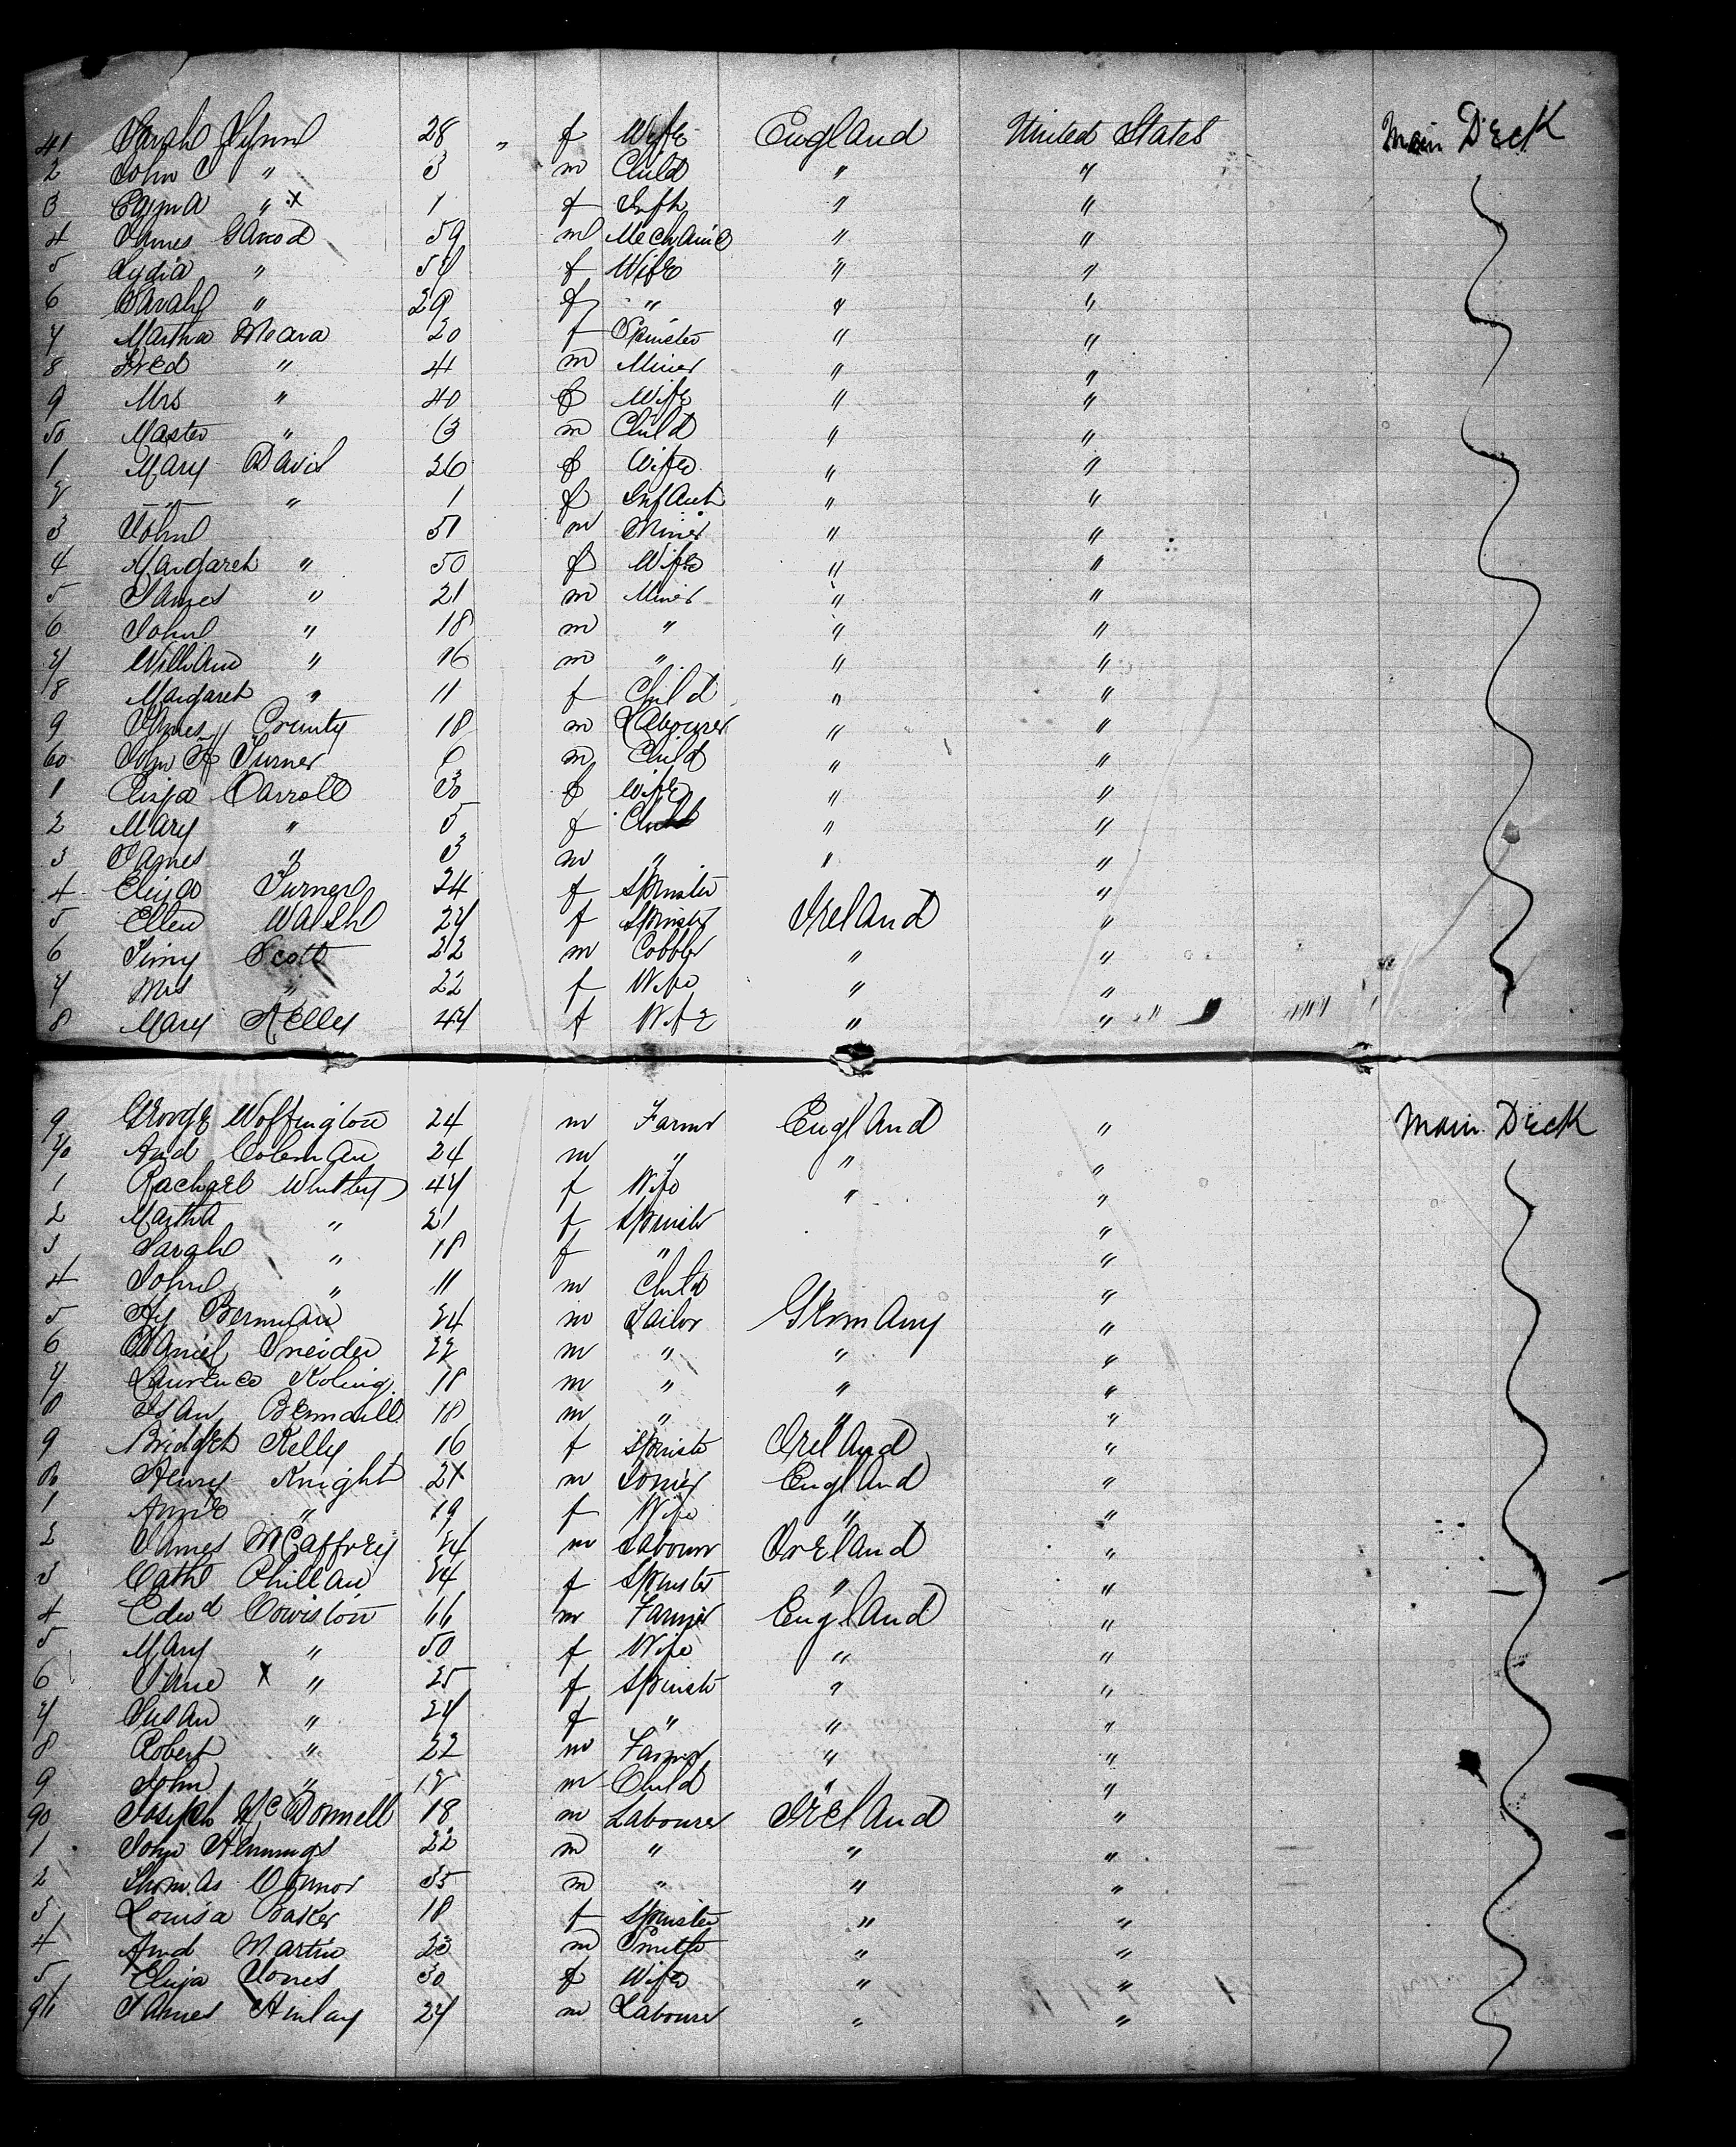 41 Sarah Flynn 28 " f Wife England United States Main Deck
2 John J " 3 m Child " "
3 Emma " x 1 f Inft " "
4 James Garod 59 m Mechanic " "
5 Lydia " 54 f Wife " "
6 Sarah " 29 f " " "
7 Martha Meara 20 f Spinster " "
8 Fred " 41 m Miner " "
9 Mrs " 40 f Wife " "
50 Master " 3 m Child " "
1 Mary David 26 f Wife " "
2 " " 1 f Infant " "
3 John 51 m Miner " "
4 Margaret " 50 f Wife " "
5 James " 21 m Miner " "
6 John " 18 m " " "
7 William " 16 m " " "
8 Margaret " 11 f Child " "
9 James Crunty 18 m Labourer " "
60 John H Turner 6 m Child " "
1 Eliza Carroll 30 f Wife " "
2 Mary " 5 f Child " "
3 James " 3 m " " "
4 Eliza Turner 24 f Spinster "
5 Ellen Walsh 27 f Spinster Ireland "
6 Jimy Scott 22 m Cobbler " "
7 Mrs " 22 f Wife " "
8 Mary Kelly 47 f Wife " "
9 George Woffington 24 m Farmr England " Main Deck
70 And Coleman 24 m " " "
1 Rachael Whitby 47 f Wife " "
2 Martha " 21 f Spinster "
3 Sarah " 18 f " "
4 John " 11 m Child "
5 Hy Berman 24 m Tailor Germany "
6 Daniel Sneider 22 m " " "
7 Laurence Koling 18 m " " "
8 Isaw Bermdill 18 m " " "
9 Bridget Kelly 16 f Spinstr Ireland "
80 Henry Knight 21 m Joiner England "
1 Annie " 19 f Wife " "
2 James McCaffrey 24 m Labourr Ireland "
3 Cath Phillan 24 f Spinster " "
4 Edwd Cowiston 66 m Farmer England "
5 Mary " 50 f Wife " "
6 Jane x " 25 f Spinstr " "
7 Susan " 24 f " " "
8 Robert " 22 m Farmer " "
9 John " 12 m Child " "
90 Joseph McDonnell 18 m Labourer Ireland "
1 John Hemmings 22 m " " "
2 Thomas Connor 35 m " " "
3 Louisa Baker 18 f Spinster " "
4 And Martin 23 m Smith " "
5 Eliza Jones 30 f Wife " "
96 James Hinlay 27 m Labourer " "